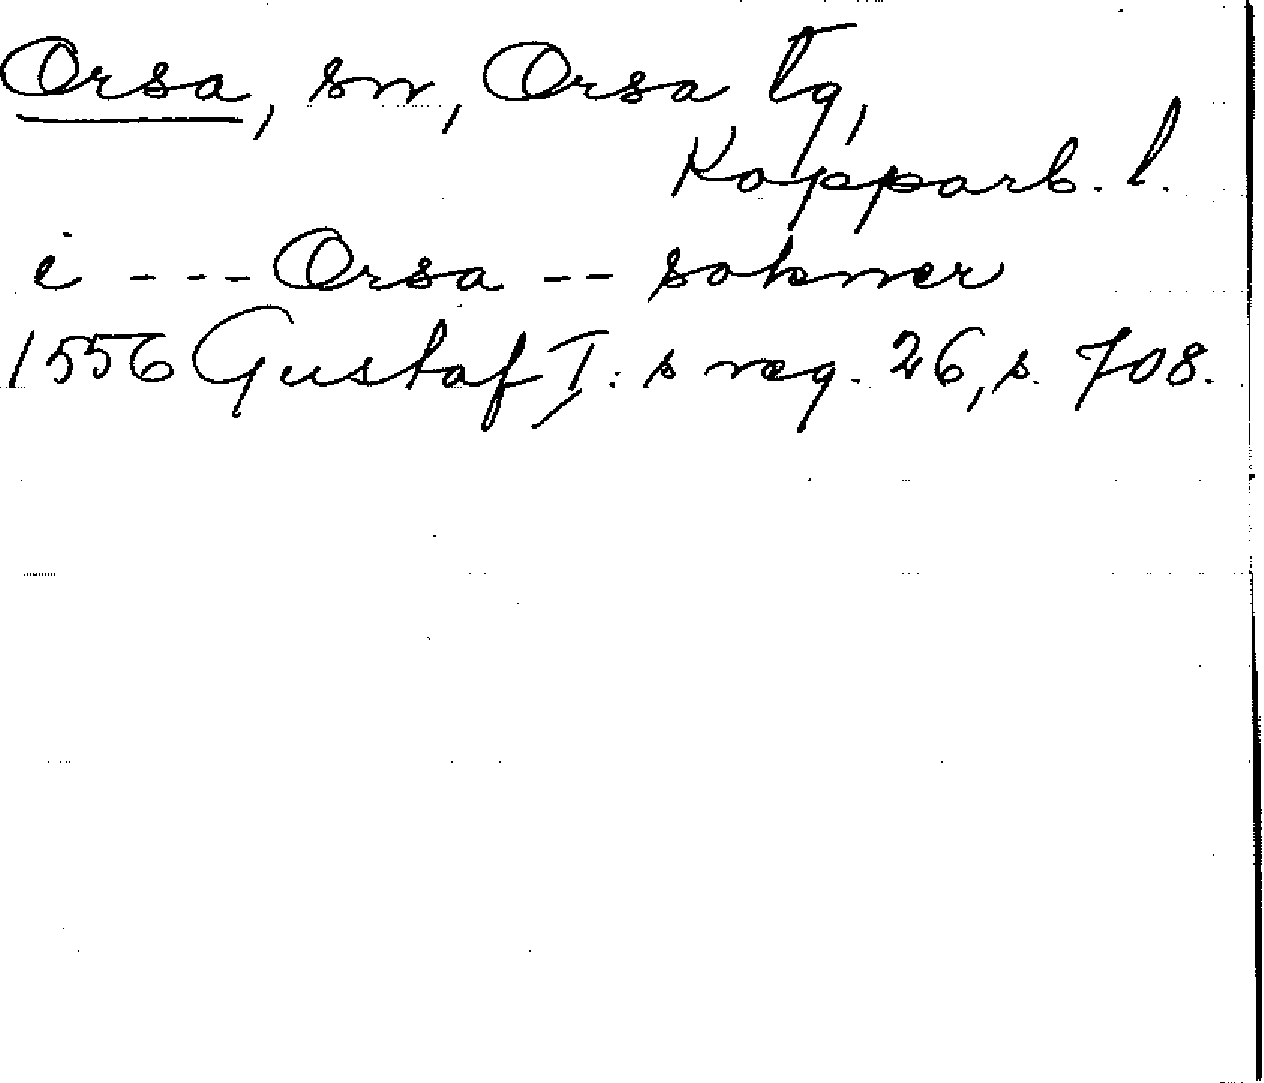 Orsa, sn, Orsa tg,
Kopparb. l.
i --- Orsa -- sokner
1556 Gustaf I: s reg. 26, s. 708.